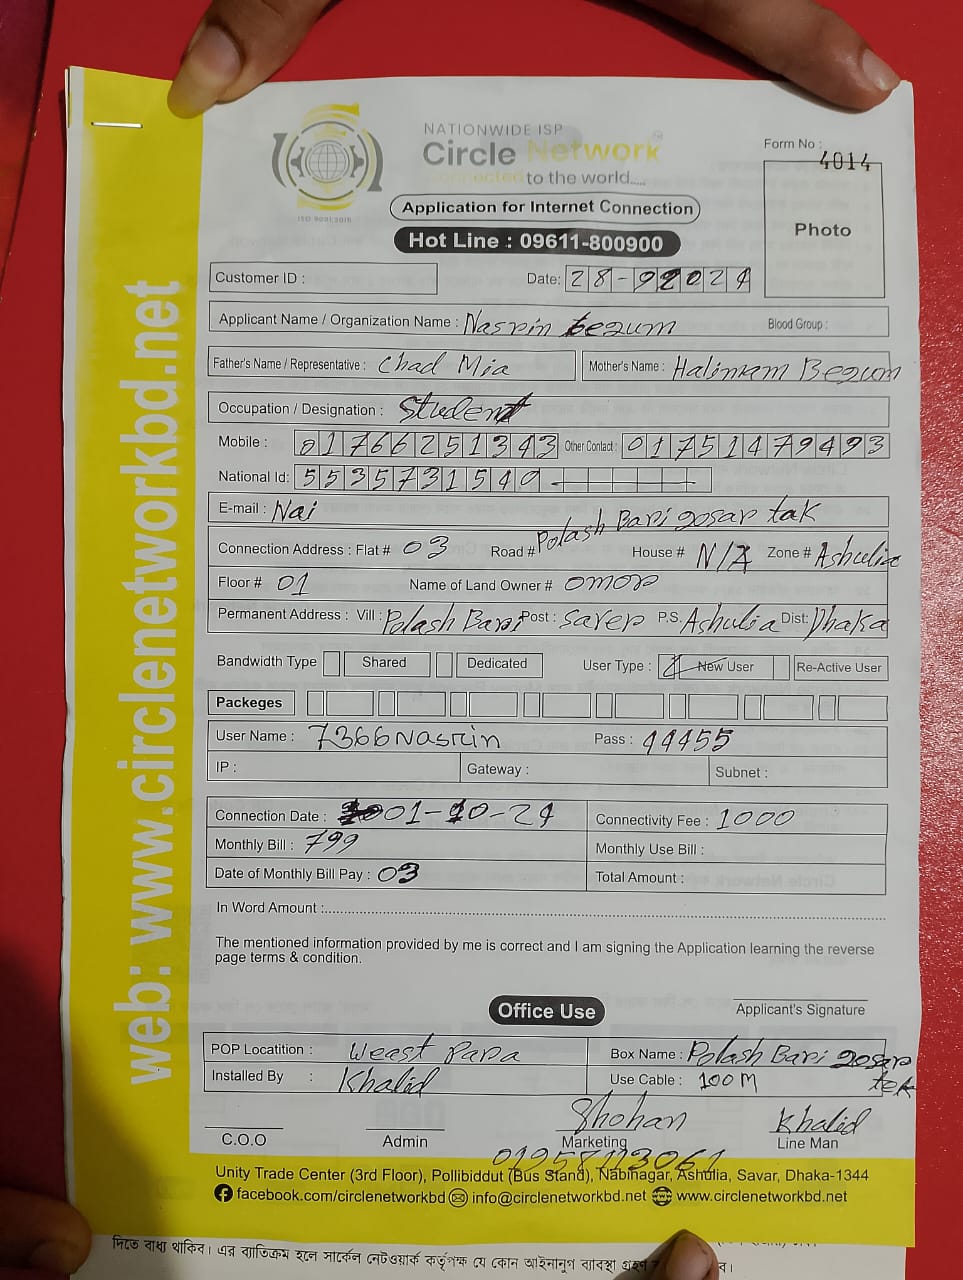 NATIONWIDE ISP
Circle Network
Connected to the world.....
ISO 9001:2015
Form No : 4014
Application for Internet Connection
Hot Line : 09611-800900
Photo
Customer ID :
Date: 28-92024
Applicant Name / Organization Name : Nasrin begum Blood Group :
Father's Name / Representative : Chad Mia Mother's Name : Halimam Begum
Occupation / Designation : Student
Mobile : 01766251343 Other Contact : 01751479493
National Id: 5535731540
E-mail : Nai
Connection Address : Flat # 03 Road # Polash Bari gosar tak House # N/A Zone # Ashulia
Floor # 01 Name of Land Owner # omor
Permanent Address : Vill : Polash Bari Post : Saver P.S. Ashulia Dist: Dhaka
Bandwidth Type Shared Dedicated User Type : New User Re-Active User
Packeges
User Name : 7366Nasrin Pass : 44455
IP : Gateway : Subnet :
Connection Date : 01-10-24 Connectivity Fee : 1000
Monthly Bill : 799 Monthly Use Bill :
Date of Monthly Bill Pay : 03 Total Amount :
In Word Amount :
The mentioned information provided by me is correct and I am signing the Application learning the reverse
page terms & condition.
Applicant's Signature
Office Use
POP Locatition : Weast Para Box Name : Polash Bari gosar tek
Installed By : Khalid Use Cable : 100M
Shohan Khalid
C.O.O Admin Marketing Line Man
01958113061
Unity Trade Center (3rd Floor), Pollibiddut (Bus Stand), Nabinagar, Ashulia, Savar, Dhaka-1344
facebook.com/circlenetworkbd info@circlenetworkbd.net www.circlenetworkbd.net
web: www.circlenetworkbd.net
দিতে বাধ্য থাকিব। এর ব্যাতিক্রম হলে সার্কেল নেটওয়ার্ক কর্তৃপক্ষ যে কোন আইনানুগ ব্যাবস্থা গ্রহণ